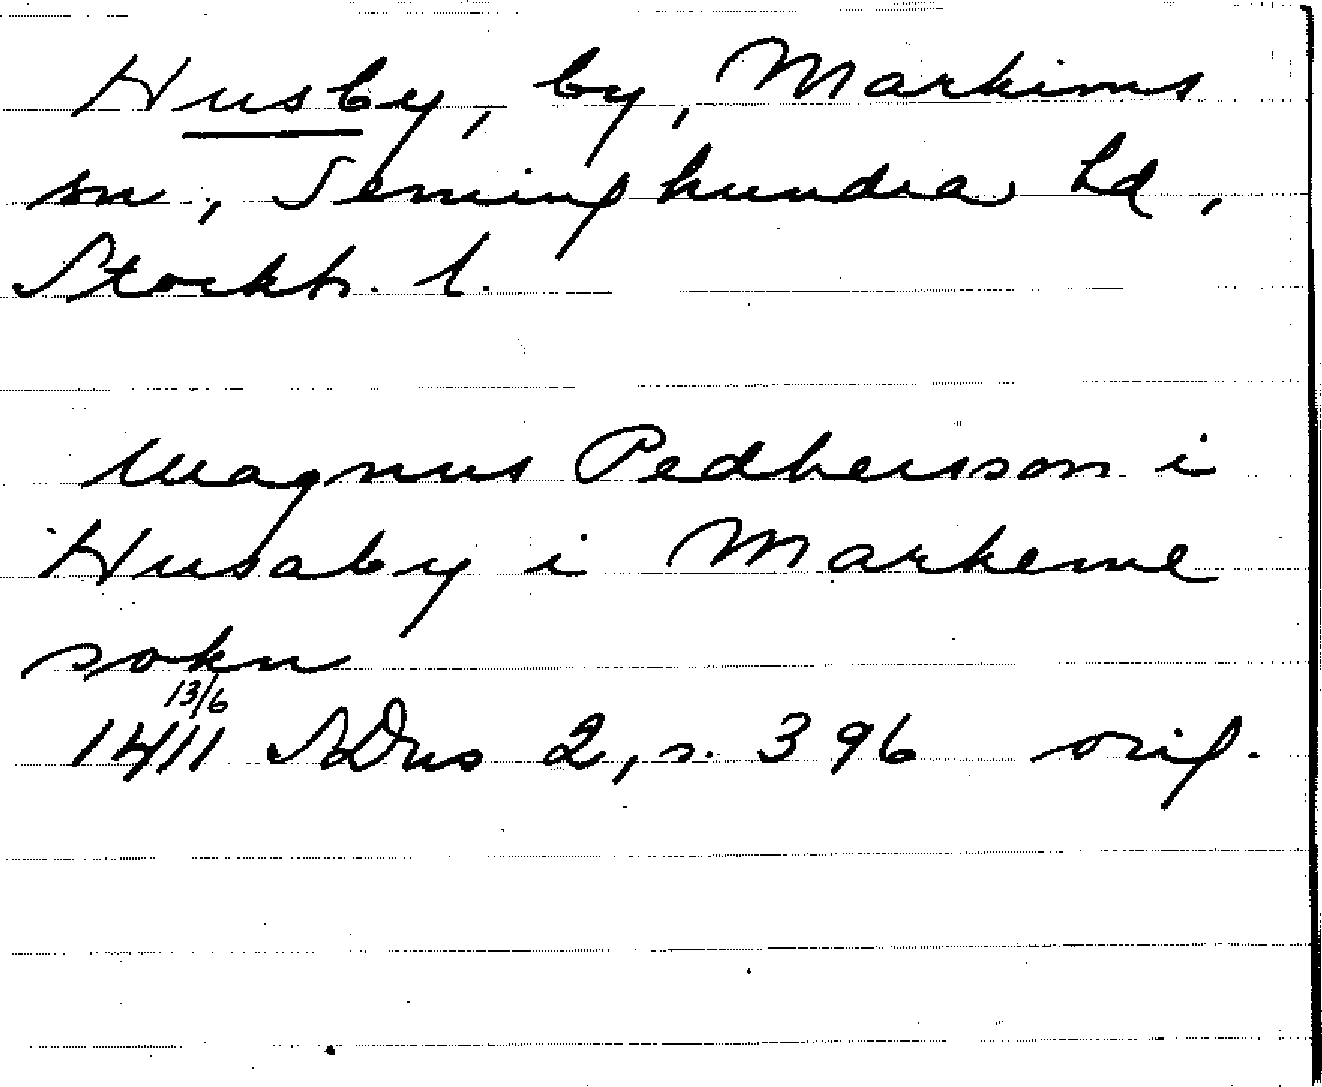 Husby, by, Markims
sn, Seminghundra hd,
Stockh. l.
Magnus Pedhersson i
Husaby i Markeme
sokn
13/6
1411 SDns 2, s. 396 orig.